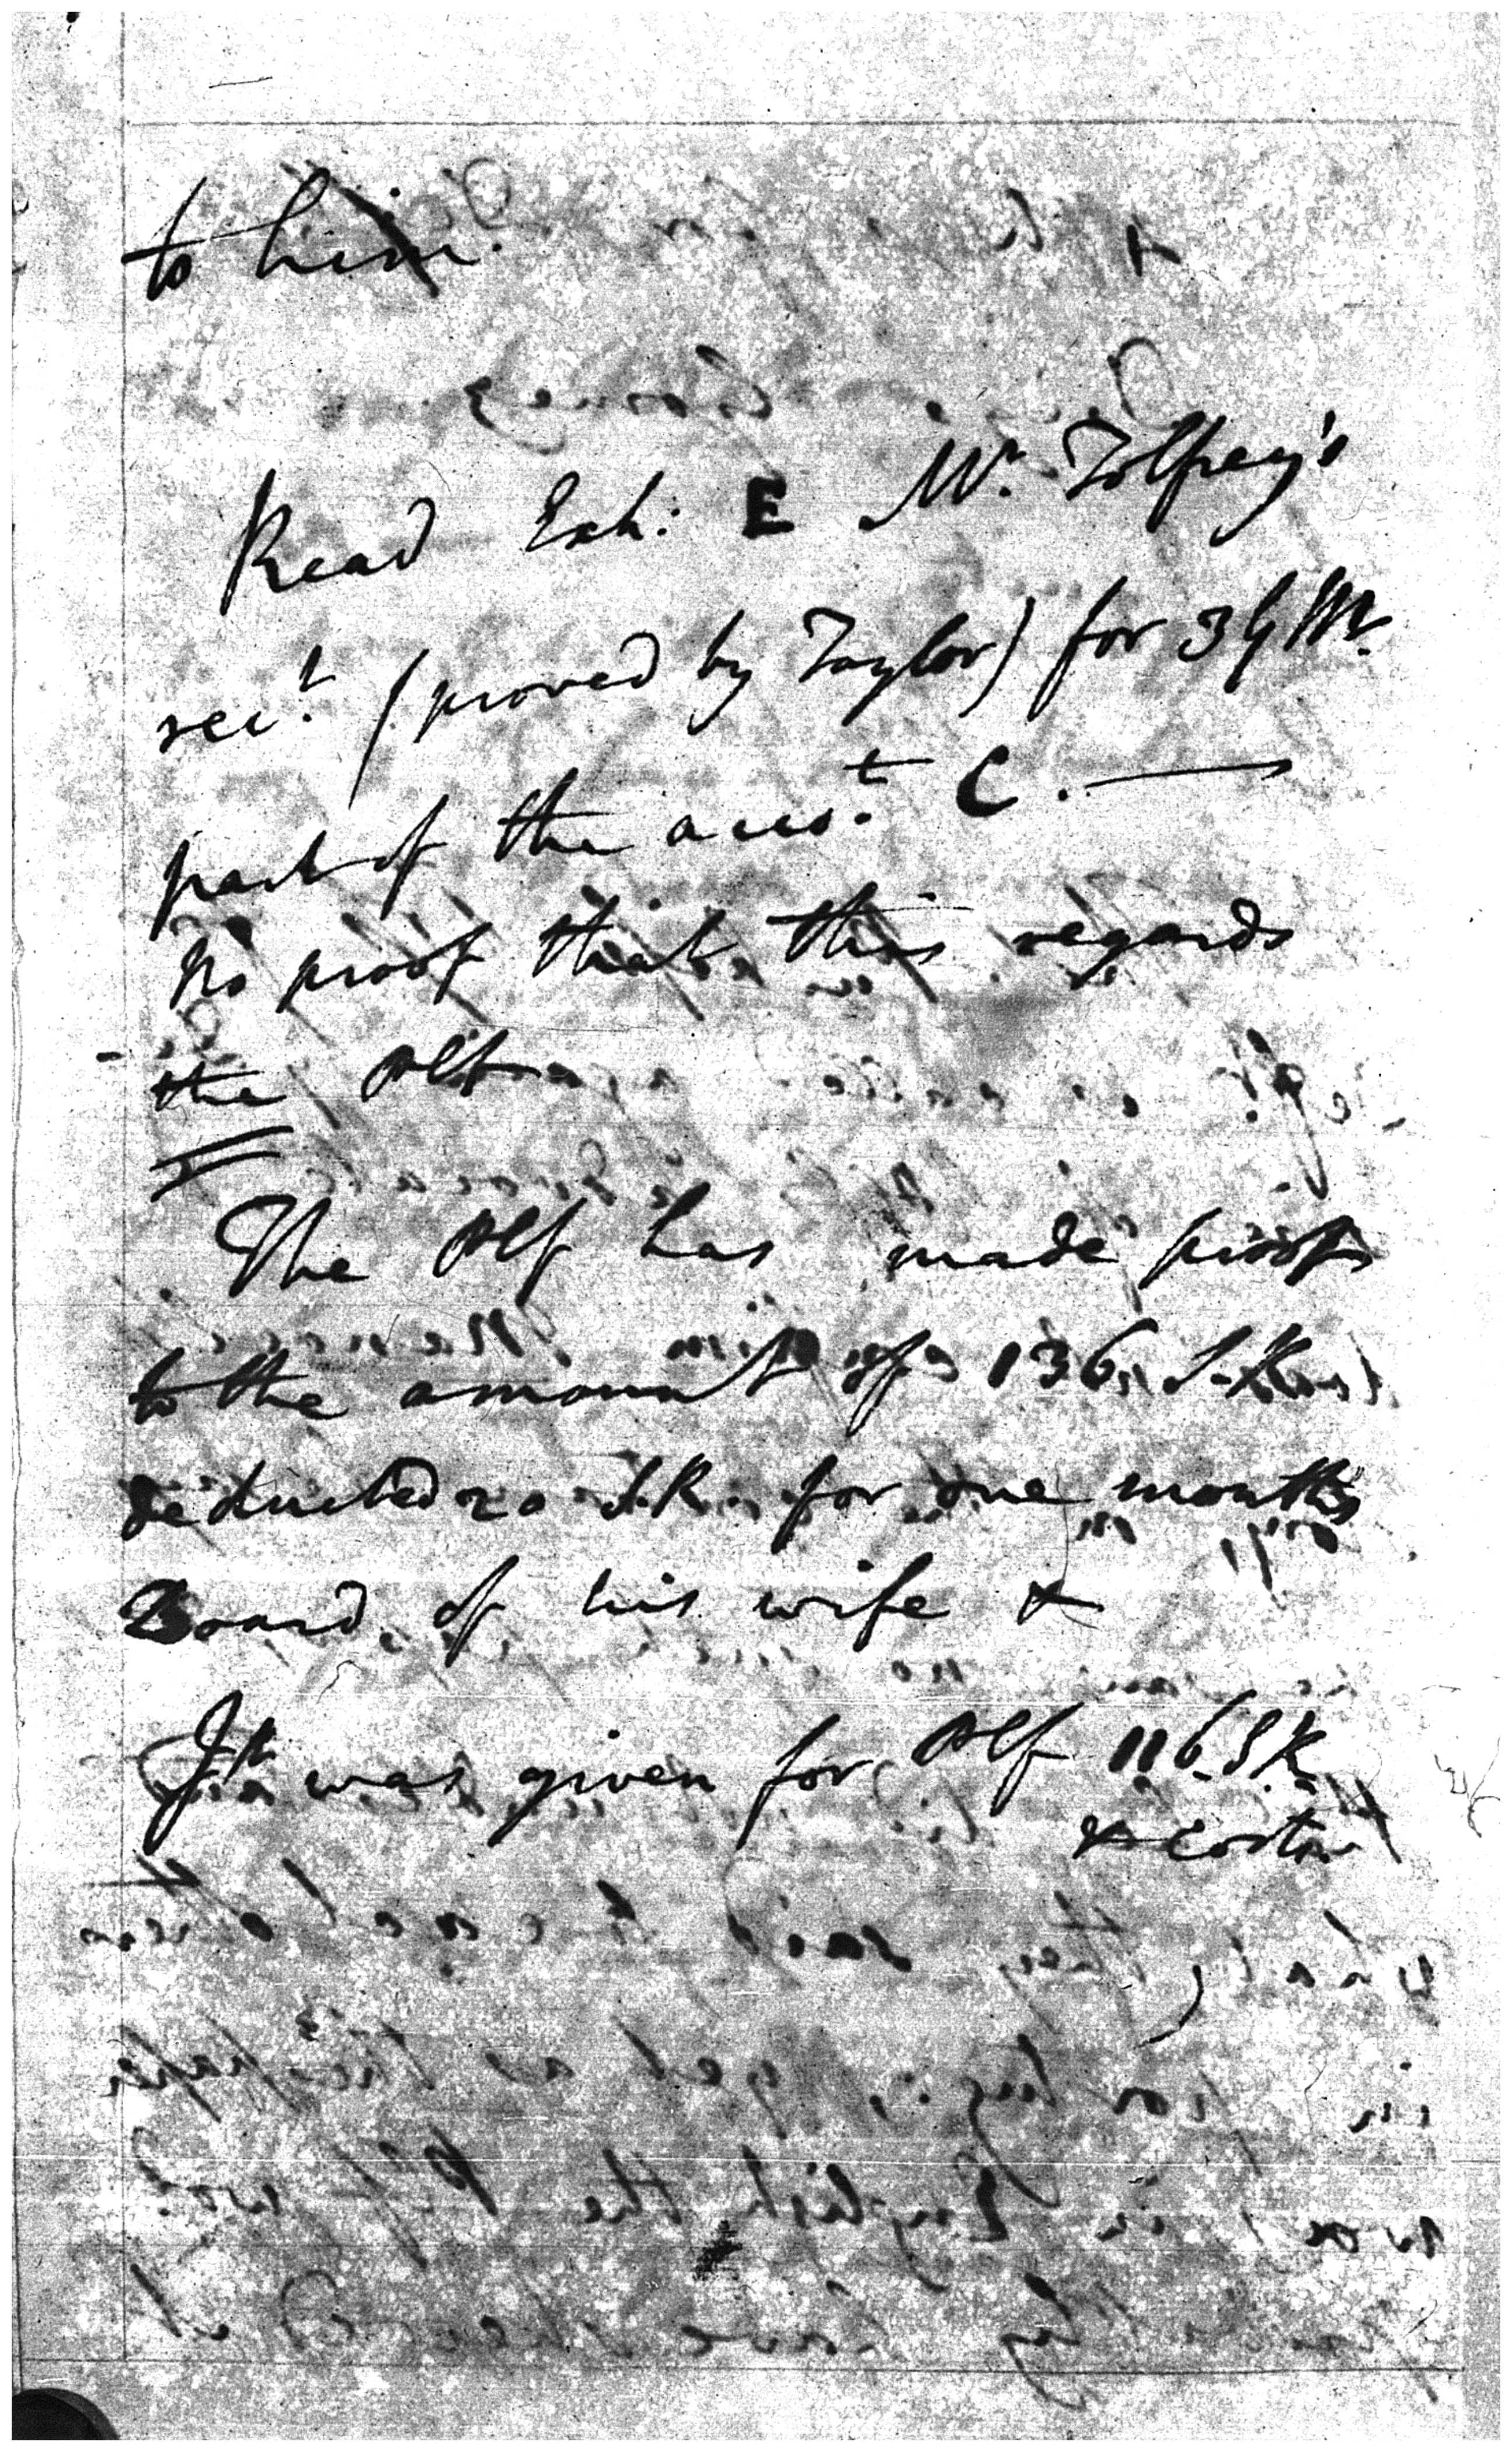 to him.
Read Exh: E Mr. Tolfrey's
rect. (proved by Taylor) for 3 G Mr.
part of the accot. C.
No proof that this regards
the Plf
The Plf has made proof
to the amount of 136. S.R.
deducted 20 S.R. for one months
Board of his wife &
Jt was given for Plf 116. S.R.
& costs